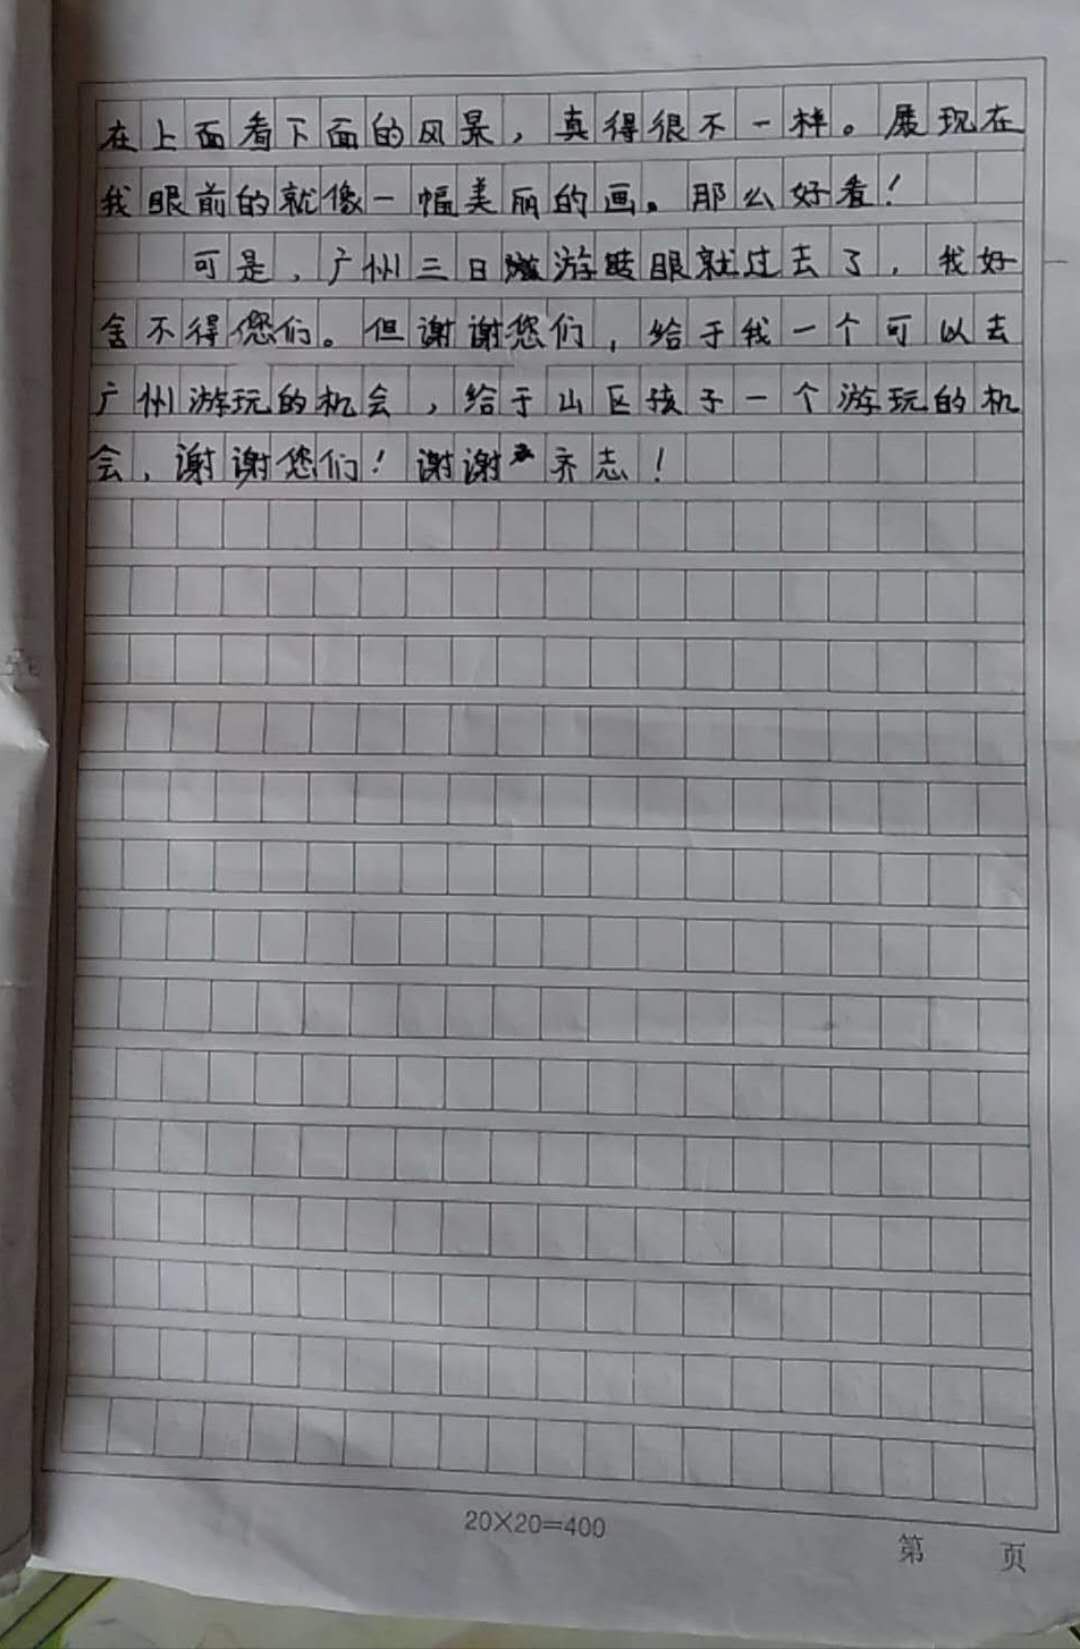 在上面看下面的风景，真得很不一样。展现在
我眼前的就像一幅美丽的画。那么好看！
可是，广州三日游转眼就过去了，我好
舍不得您们。但谢谢您们，给于我一个可以去
广州游玩的机会，给于山区孩子一个游玩的机
会，谢谢您们！谢谢齐志！
20×20=400
第 页